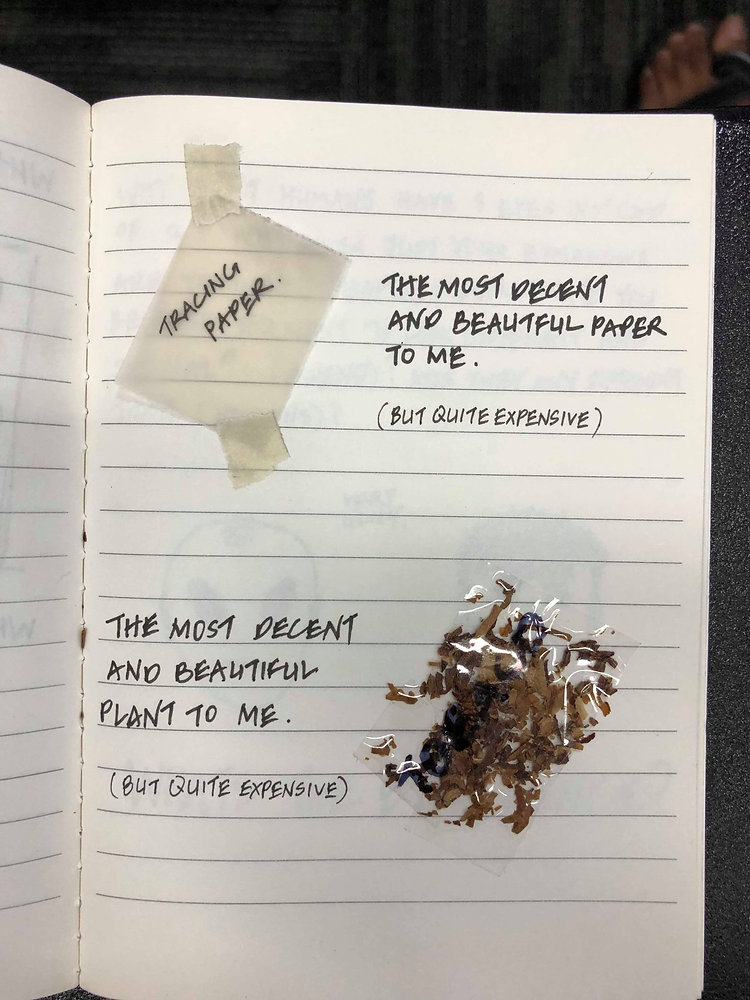 TRACING
PAPER.
THE MOST DECENT
AND BEAUTFUL PAPER
TO ME.
(BUT QUITE EXPENSIVE)
THE MOST DECENT
AND BEAUTIFUL
PLANT TO ME.
(BUT QUITE EXPENSIVE)